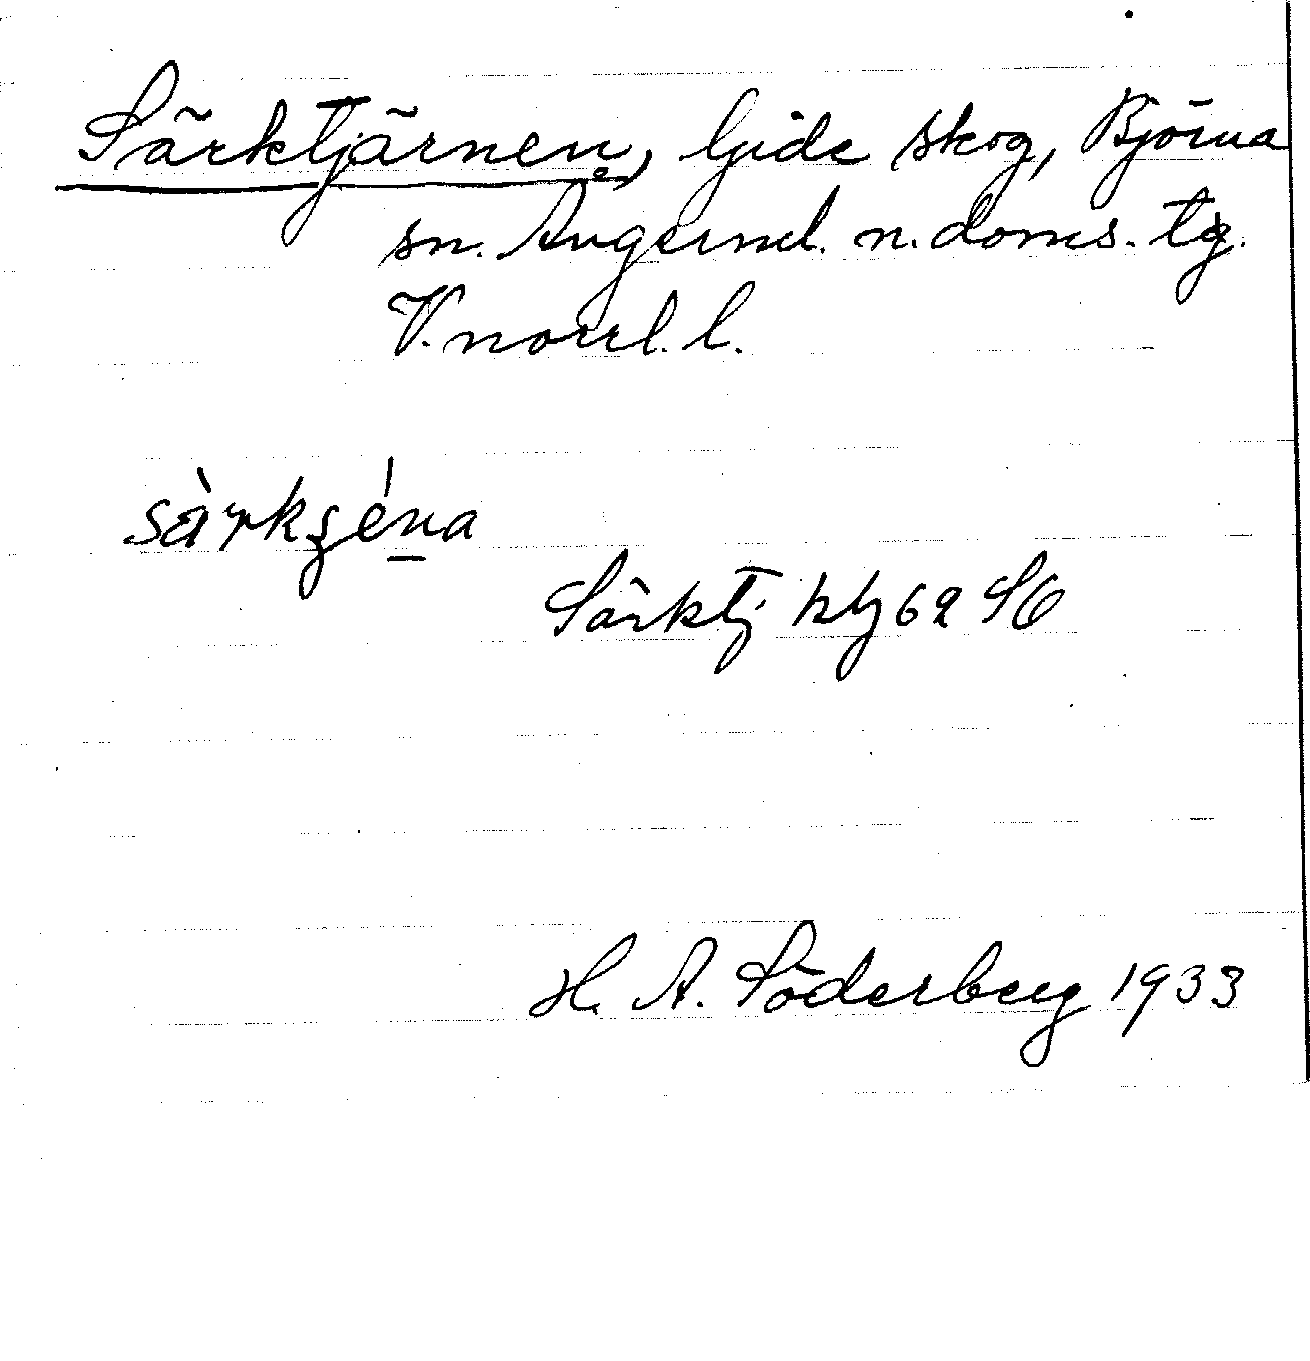 Särktjärnen, Gide skog, Björna
sn. Ångerml. n. doms. tg.
V. norrl. l.
Särktj. 62 SO
H. A. Söderberg 1933